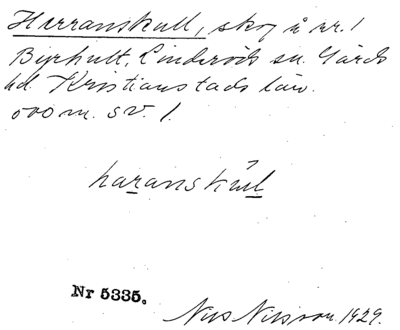 Harranskull, skog å nr. 1
Byrhult, Linderöds sn. Gärds
hd. Kristianstads län.
500 m. SV. 1.
haranskul
Nr 5335.
Nils Nilsson 1929.